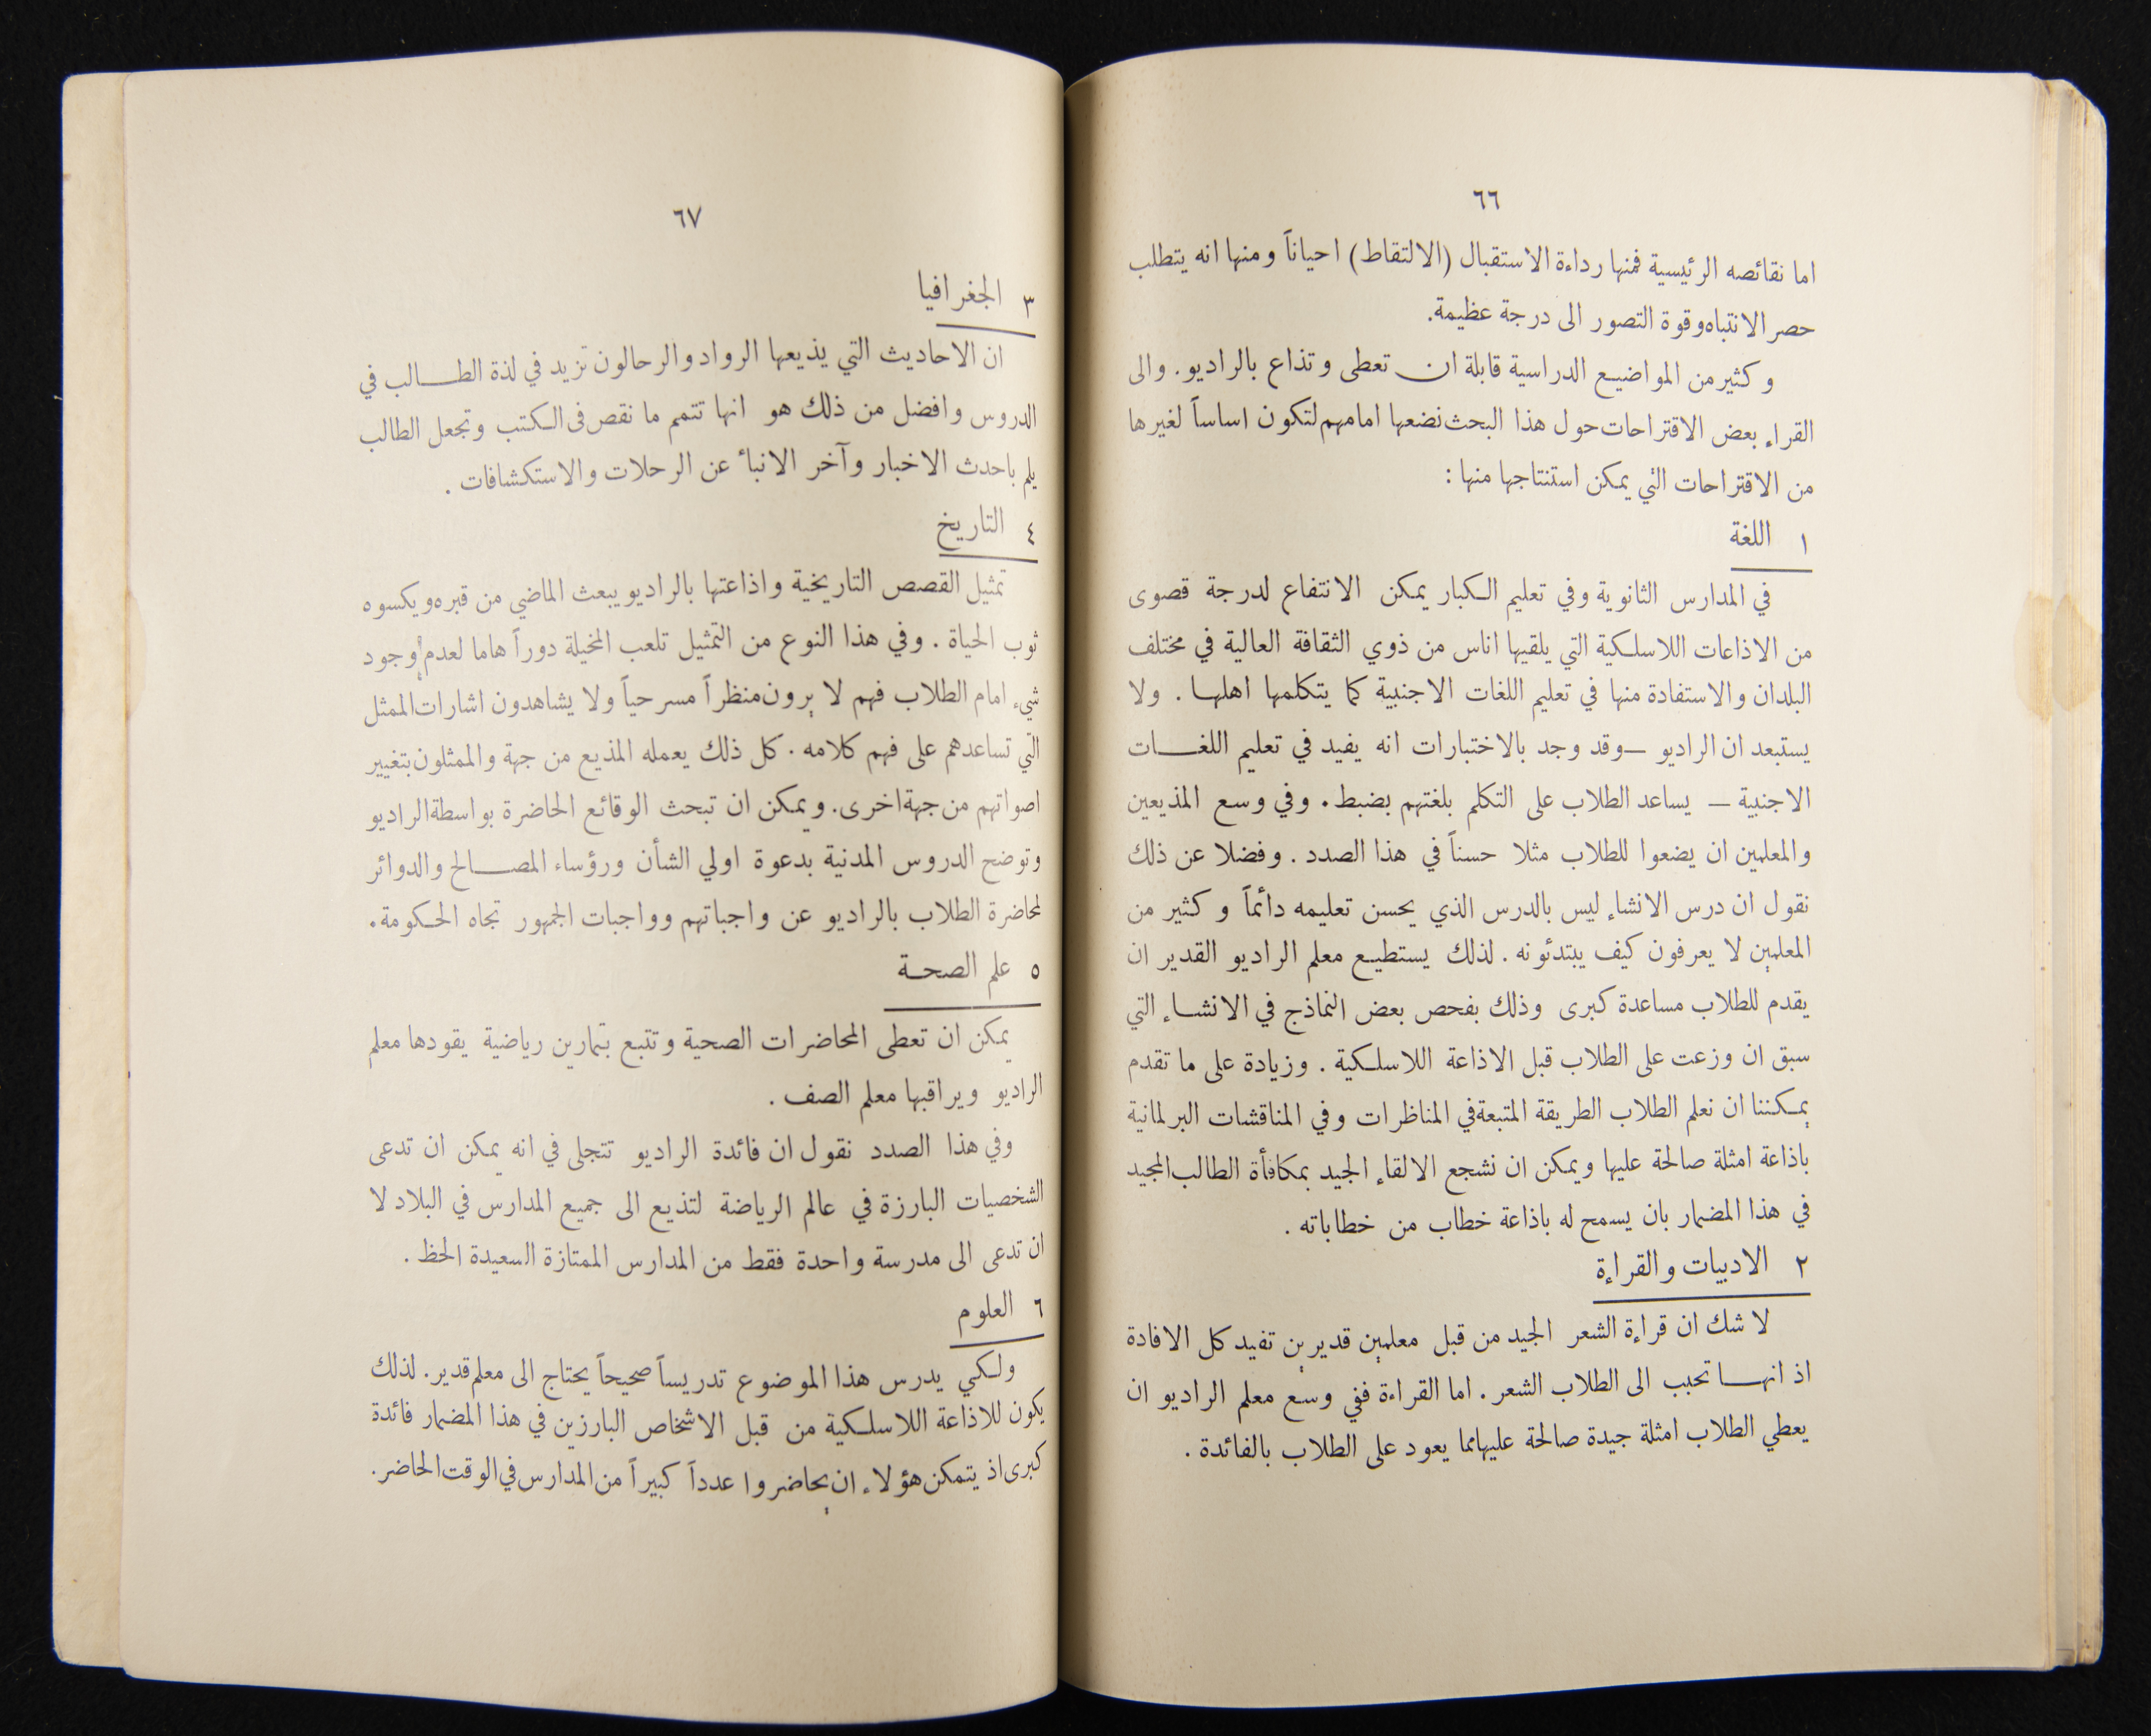 ٦٦
اما نقائصه الرئيسية فمنها رداءة الاستقبال (الالتقاط) احياناً ومنها انه يتطلب
حصر الانتباه وقوة التصور الى درجة عظيمة.
وكثير من المواضيع الدراسية قابلة ان تعطى وتذاع بالراديو. والى
القراء بعض الاقتراحات حول هذا البحث نضعها امامهم لتكون اساساً لغيرها
من الاقتراحات التي يمكن استنتاجها منها :
١ اللغة
في المدارس الثانوية وفي تعليم الكبار يمكن الانتفاع لدرجة قصوى
من الاذاعات اللاسلكية التي يلقيها اناس من ذوي الثقافة العالية في مختلف
البلدان والاستفادة منها في تعليم اللغات الاجنبية كما يتكلمها اهلها . ولا
يستبعد ان الراديو — وقد وجد بالاختبارات انه يفيد في تعليم اللغات
الاجنبية — يساعد الطلاب على التكلم بلغتهم بضبط . وفي وسع المذيعين
والمعلمين ان يضعوا للطلاب مثلا حسناً في هذا الصدد . وفضلا عن ذلك
نقول ان درس الانشاء ليس بالدرس الذي يحسن تعليمه دائماً وكثير من
المعلمين لا يعرفون كيف يبتدئونه . لذلك يستطيع معلم الراديو القدير ان
يقدم للطلاب مساعدة كبرى وذلك بفحص بعض النماذج في الانشاء التي
سبق ان وزعت على الطلاب قبل الاذاعة اللاسلكية . وزيادة على ما تقدم
يمكننا ان نعلم الطلاب الطريقة المتبعة في المناظرات وفي المناقشات البرلمانية
باذاعة امثلة صالحة عليها ويمكن ان نشجع الالقاء الجيد بمكافأة الطالب المجيد
في هذا المضمار بان يسمح له باذاعة خطاب من خطاباته .
٢ الادبيات والقراءة
لا شك ان قراءة الشعر الجيد من قبل معلمين قديرين تفيد كل الافادة
اذ انها تحبب الى الطلاب الشعر . اما القراءة ففي وسع معلم الراديو ان
يعطي الطلاب امثلة جيدة صالحة عليها مما يعود على الطلاب بالفائدة .
٦٧
٣ الجغرافيا
ان الاحاديث التي يذيعها الرواد والرحالون تزيد في لذة الطالب في
الدروس وافضل من ذلك هو انها تتمم ما نقص في الكتب وتجعل الطالب
يلم باحدث الاخبار وآخر الانباء عن الرحلات والاستكشافات .
٤ التاريخ
تمثيل القصص التاريخية واذاعتها بالراديو يبعث الماضي من قبره ويكسوه
ثوب الحياة . وفي هذا النوع من التمثيل تلعب المخيلة دوراً هاما لعدم وجود
شيء امام الطلاب فهم لا يرون منظراً مسرحياً ولا يشاهدون اشارات الممثل
التي تساعدهم على فهم كلامه . كل ذلك يعمله المذيع من جهة والممثلون بتغيير
اصواتهم من جهة اخرى. ويمكن ان تبحث الوقائع الحاضرة بواسطة الراديو
وتوضح الدروس المدنية بدعوة اولي الشأن ورؤساء المصالح والدوائر
لمحاضرة الطلاب بالراديو عن واجباتهم وواجبات الجمهور تجاه الحكومة .
٥ علم الصحة
يمكن ان تعطى المحاضرات الصحية وتتبع بتمارين رياضية يقودها معلم
الراديو ويراقبها معلم الصف .
وفي هذا الصدد نقول ان فائدة الراديو تتجلى في انه يمكن ان تدعى
الشخصيات البارزة في عالم الرياضة لتذيع الى جميع المدارس في البلاد لا
ان تدعى الى مدرسة واحدة فقط من المدارس الممتازة السعيدة الحظ .
٦ العلوم
ولكي يدرس هذا الموضوع تدريساً صحيحاً يحتاج الى معلم قدير. لذلك
يكون للاذاعة اللاسلكية من قبل الاشخاص البارزين في هذا المضمار فائدة
كبرى اذ يتمكن هؤلاء ان يحاضروا عدداً كبيراً من المدارس في الوقت الحاضر.